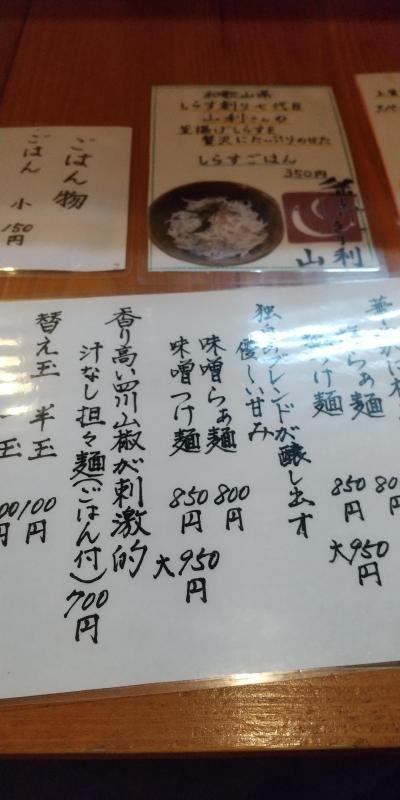 和歌山県
しらす創り七代目
山利さんの
釜揚げしらすを
贅沢にたっぷりのせた
しらすごはん
350円
山利
ごはん物
ごはん 小 150円
らぁ麺 80
つけ麺 850円 大950円
独自のブレンドが醸し出す
優しい甘み
味噌らぁ麺 800円
味噌つけ麺 850円 大950円
香り高い四川山椒が刺激的
汁なし担々麺(ごはん付) 700円
替え玉 半玉 100円
玉 00円